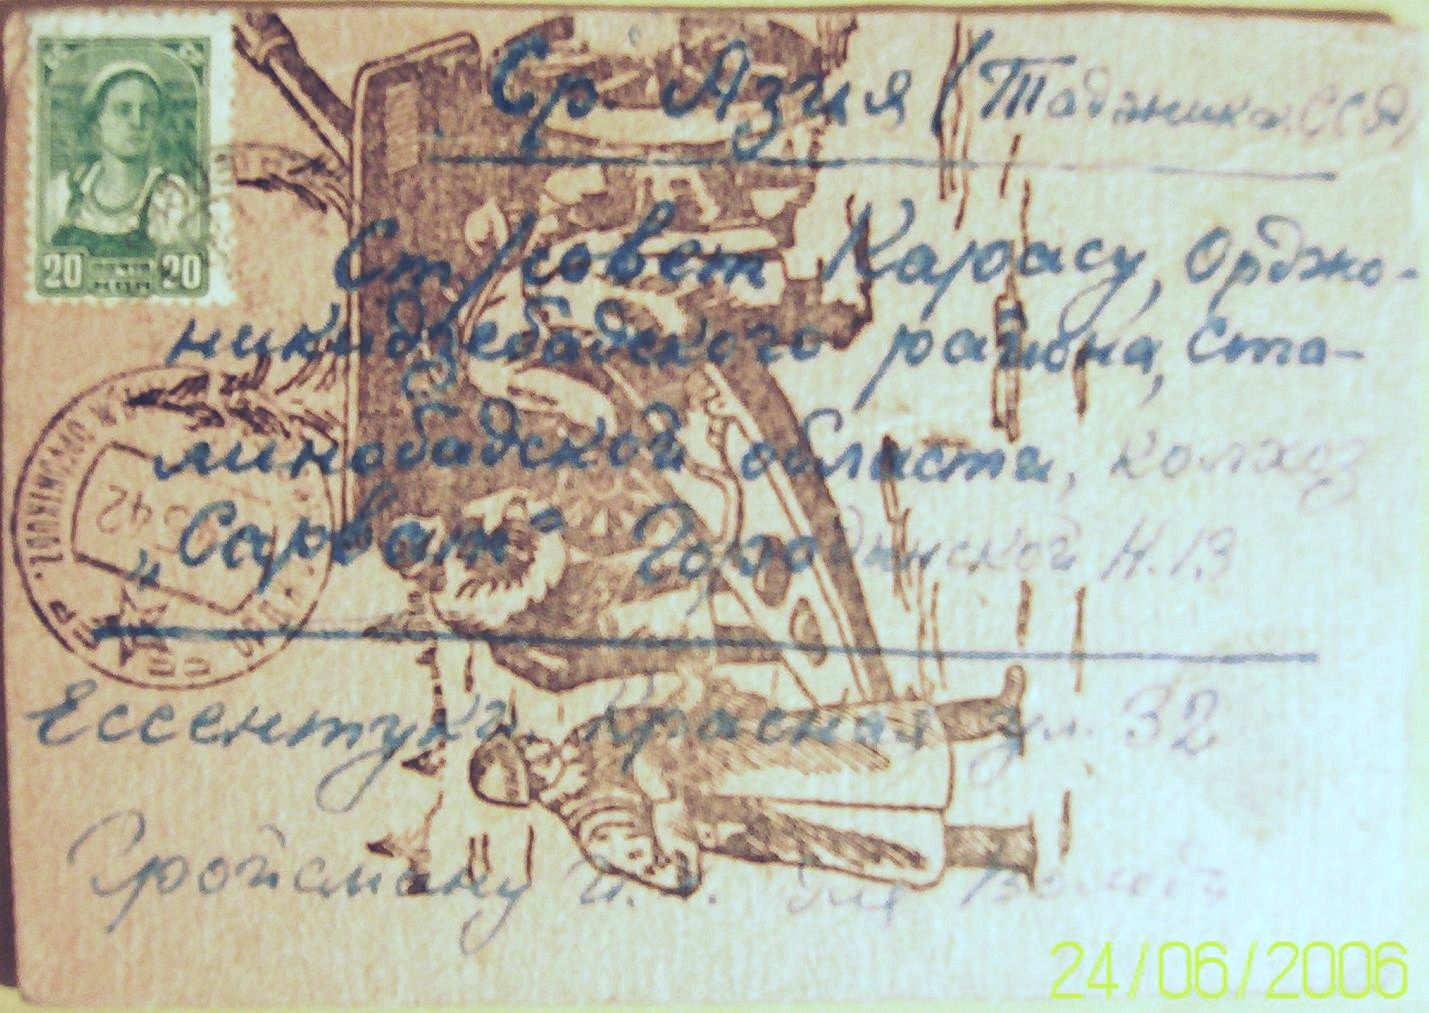 20 КОП 20
Ср. Азия (Таджикская ССР)
Ст/совет Карасу, Орджо-
никидзебадского района, Ста-
линобадской области, колхоз
„Сарват" Городынской Н.
Ессентуки. Красная ул. 32
Гройсману для
24/06/2006